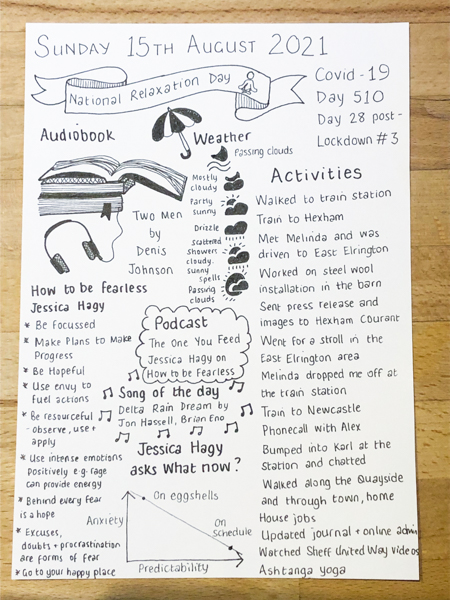 SUNDAY 15TH AUGUST 2021
National Relaxation Day
Covid-19
Day 510
Day 28 post-
Lockdown #3
Audiobook
Two Men
by
Denis
Johnson
Weather
Passing clouds
Mostly
cloudy
Partly
sunny
Drizzle
Scattered
Showers
cloudy.
Sunny
Spells
Passing
clouds
How to be fearless
Jessica Hagy
* Be focussed
* Make Plans to Make
Progress
* Be Hopeful
* Use envy to
fuel actions
* Be resourceful
- observe, use +
apply
* Use intense emotions
Positively e.g. rage
Can provide energy
* Behind every fear
is a hope
* Excuses,
doubts + procrastination
are forms of fear
* Go to your happy place
Podcast
The One You Feed
Jessica Hagy on
How to be Fearless
Song of the day
Delta Rain Dream by
Jon Hassell, Brian Eno
Jessica Hagy
asks What now?
On eggshells
Anxiety
On
Schedule
Predictability
Activities
Walked to train station
Train to Hexham
Met Melinda and was
driven to East Elrington
Worked on steel wool
installation in the barn
Sent press release and
images to Hexham Courant
Went for a stroll in the
East Elrington area
Melinda dropped me off at
the train station
Train to Newcastle
Phonecall with Alex
Bumped into Karl at the
Station and chatted
Walked along the Quayside
and through town, home
House jobs
Updated journal + online admin
Watched Sheff United Way videos
Ashtanga yoga